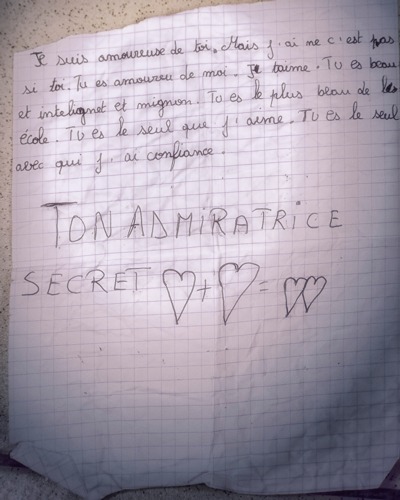 Je suis amoureuse de toi. Mais j'ai ne c'est pas
si toi. Tu es amoureu de moi. Je taime. Tu es beau
et intelignet et mignon. Tu es le plus beau de les
école. Tu es le seul que j'aime. Tu es le seul
avec qui j'ai confiance.
TON ADMIRATRICE
SECRET ♡ + ♡ = ♡♡